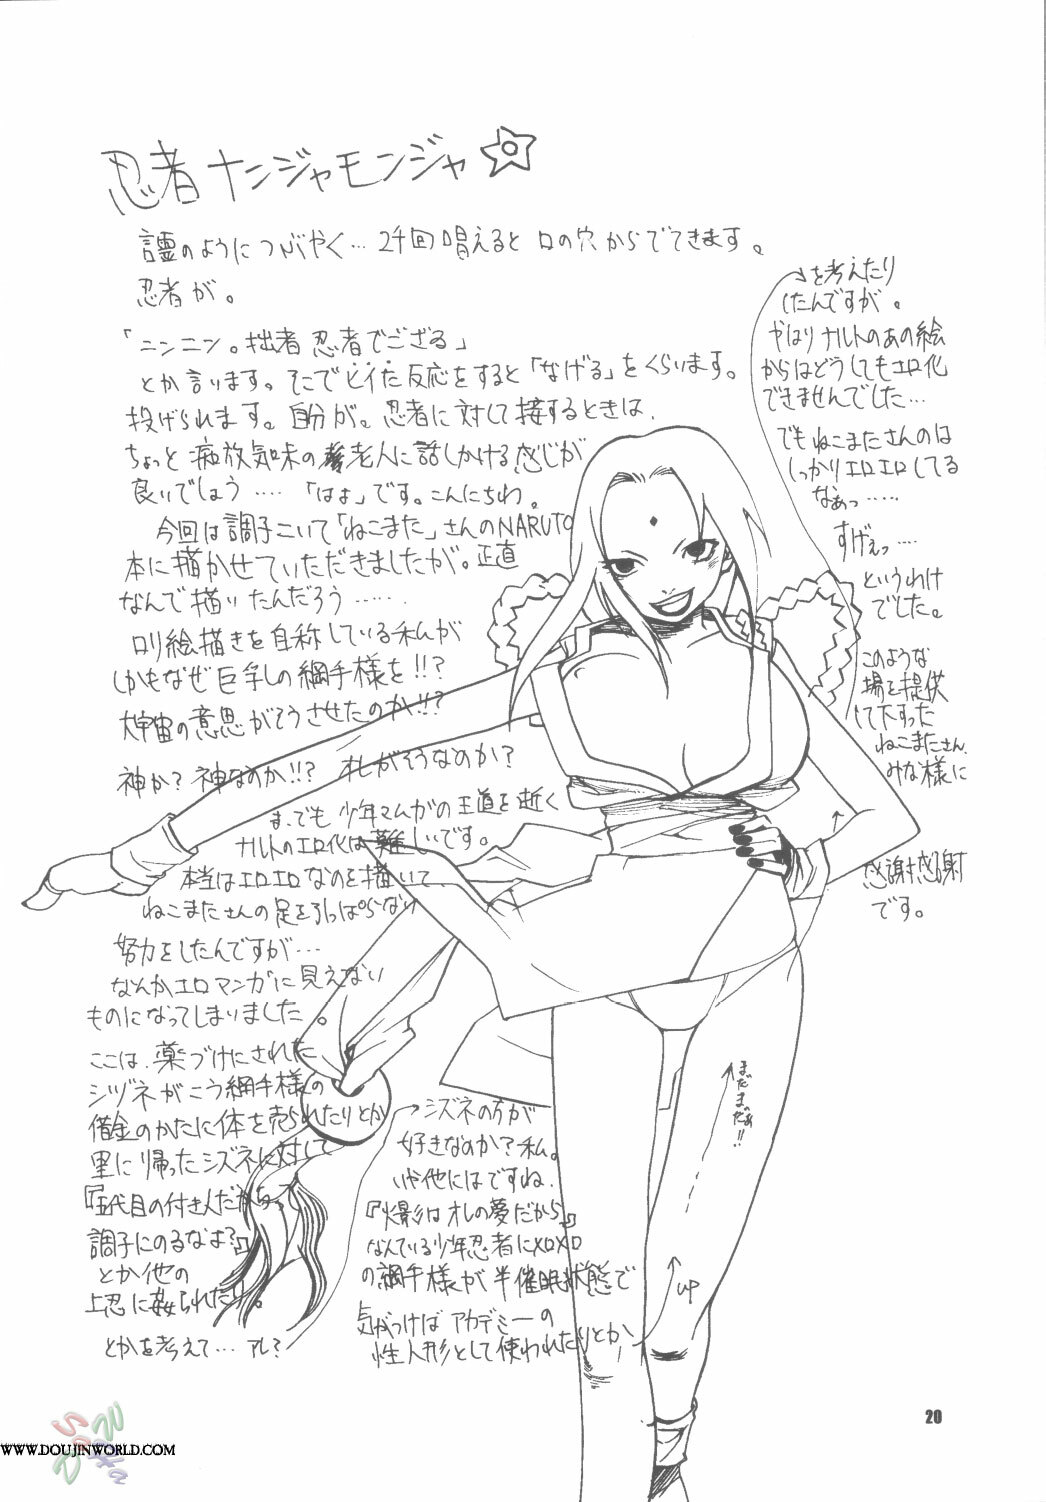 忍者ナンジャモンジャ☆
言霊のようにつぶやく…24回唱えると口の穴からでてきます。
忍者が。
「ニンニン。拙者忍者でござる」
とか言います。そこでヒイた反応をすると「なげる」をくらいます。
投げられます。自分が。忍者に対して接するときは、
ちょっと痴放気味の老人に話しかける感じが
良いでしょう……「はよ」です。こんにちわ。
今回は調子こいて「ねこまた」さんのNARUTO
本に描かせていただきましたが。正直
なんで描いたんだろう……
ロリ絵描きを自称している私が
しかもなぜ巨乳しの綱手様を!!?
大宇宙の意思がそうさせたのか!!?
神か?神なのか!!?オレがそうなのか?
ま、でも少年マムガの王道を逝く
ナルトのエロ化は難しいです。
本当はエロエロなのを描いて、
ねこまたさんの足を引っぱらない
努力をしたんですが…
なんかエロマンガに見えない
ものになってしまいました。
ここは、薬づけにされた
シヅネがこう綱手様の
借金のかたに体を売られたりとか
里に帰ったシズネに対して
『五代目の付き人だからって
調子にのるなよ?』
とか他の
上忍に姦られたり。
とかを考えて…アレ?
シズネの方が
好きなのか?私。
いや他にはですね、
『火影はオレの夢だから』
なんている少年忍者にXOXO
の綱手様が半催眠状態で
気がつけばアカデミーの
性人形として使われたりとか
UP
まだまだぁ!!
を考えたり
したんですが。
やはりナルトのあの絵
からはどうしてもエロ化
できませんでした…
でもねこまたさんのは
しっかりエロエロしてる
なぁっ……
すげぇっ…
というわけ
でした。
このような
場を提供
して下すった
ねこまたさん、
みな様に
感謝感謝
です。
20
WWW.DOUJINWORLD.COM